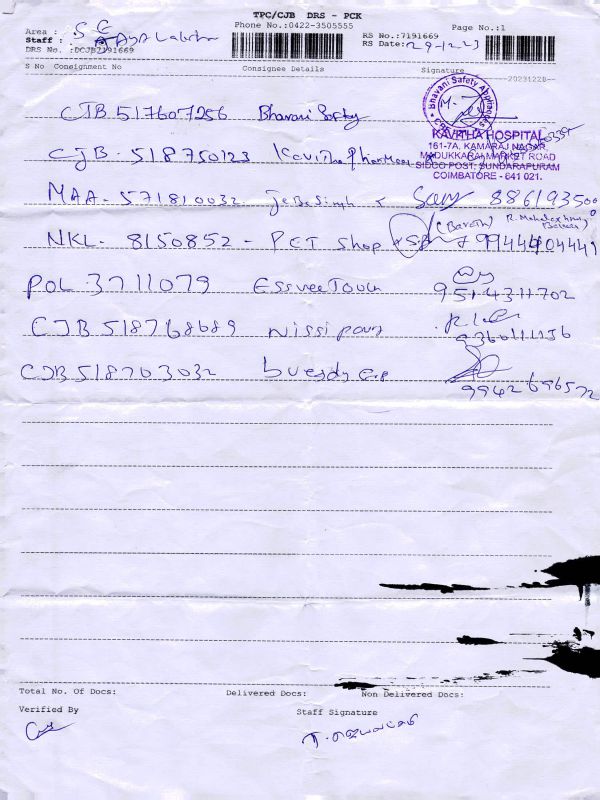 TPC/CJB DRS - PCK
Phone No.:0422-3505555
Page No.:1
Area : S C
Staff :
DRS No. :DCJB7191669
RS No.:7191669
RS Date: 29-12-23
S No Consignment No Consignee Details Signature
20231228--
Bhavani Safety Appliances
CJB 517607256 Bhavani Safety
KAVITHA HOSPITAL
161-7A, KAMARAJ NAGAR,
MADUKKARAI MARKET ROAD
SIDCO POST, SUNDARAPURAM
COIMBATORE - 641 021.
CJB - 518750123 Kavitha Pharmacy
MAA - 571810032 Jebasingh 8861935000
(Barath)
NKL - 8150852 - PCT Shop 9944404449
POL 3711079 Essvee Touch
9514311702
CJB 518768689 Nissi
CJB 518703032
9942696572
Total No. Of Docs: Delivered Docs: Non Delivered Docs:
Verified By Staff Signature